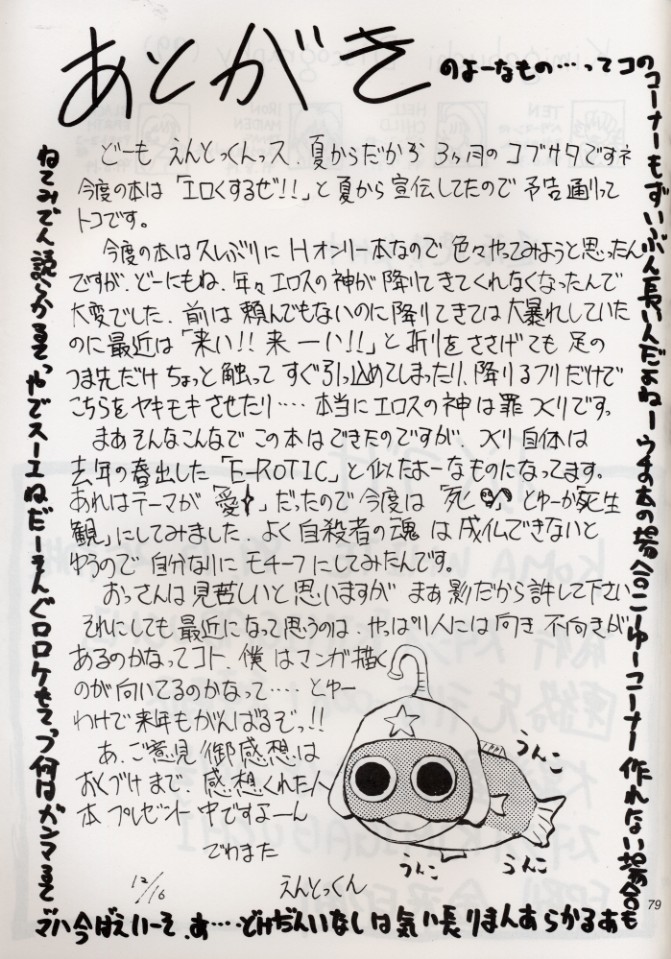 あとがき
のよーなもの…ってコのコーナーもずいぶん長いんだよねーウチの本の場合こーゆーコーナー作れない場合も
あるからあんまり長い気はしないんだけど…あ、そーいえば今
どーも えんとっくんっス、夏からだから 3ヶ月のゴブサタですネ
今度の本は「エロくするぜ!!」と夏から宣伝してたので予告通りって
トコです。
今度の本は久しぶりに Hオンリー本なので 色々やってみようと思ったん
ですが、どーにもね、年々エロスの神が降りてきてくれなくなったんで
大変でした、前は頼んでもないのに降りてきては大暴れしていた
のに最近は「来い!! 来ーい!!」と祈りをささげても 足の
つま先だけちょっと触って すぐ引っ込めてしまったり、降りるフリだけで
こちらをヤキモキさせたり…・本当にエロスの神は罪つくりです。
まあそんなこんなで この本はできたのですが、つくり自体は
去年の春出した「E-ROTIC」と似たよーなものになってます。
あれはテーマが「愛」だったので 今度は「死」とゆーか「死生
観」にしてみました、よく自殺者の魂は成仏できないと
ゆうので 自分なりに モチーフにしてみたんです。
おっさんは見苦しいと思いますが まあ影だから許して下さい
それにしても最近になって思うのは、やっぱり人には向き不向きが
あるのかなってコト、僕はマンガ描く
のが向いてるのかなって…・とゆー
わけで来年もがんばるぞっ!!
あ、ご意見 御感想は
おくづけまで、感想くれた人
本プレゼント中ですよーん
でわまた
12/16 えんとっくん
うんこ
うんこ
うんこ
79